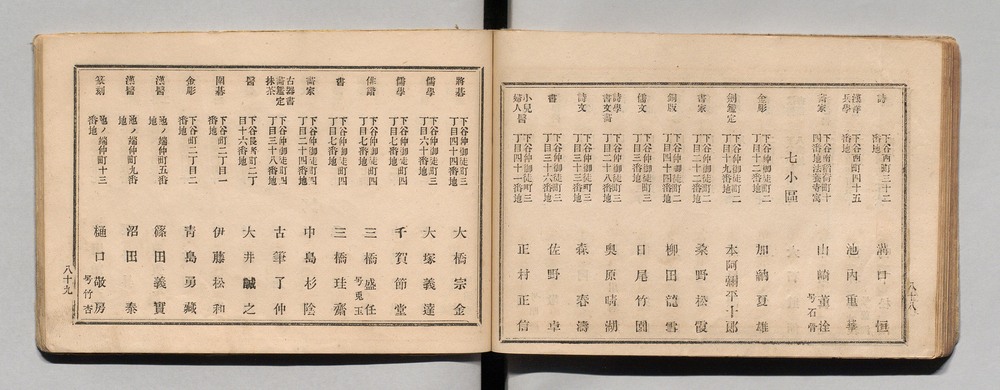 詩 下谷西町三十二番地 溝口恒
漢洋兵學 下谷西町四十五番地 池內重華
畵家 下谷南稻荷町十四番地法養寺寓 山崎董洤 号石膏
七小區
金彫 下谷仲御徒町二丁目十二番地 加納夏雄
劍鑑定 下谷仲御徒町二丁目十九番地 本阿彌平十郎
書家 下谷仲御徒町二丁目二十二番地 桑野松霞
銅版 下谷仲御徒町二丁目四十四番地 柳田龍雪
儒文 下谷仲御徒町三丁目 日尾竹園
詩學書文畵 下谷仲御徒町三丁目二十八番地 奥原晴湖
詩文 下谷仲御徒町三丁目三十三番地 森春濤
書 下谷仲御徒町三丁目三十六番地 佐野卓
小兒婦人醫 下谷仲御徒町三丁目四十一番地 正村正信
八十八
將碁 下谷仲御徒町三丁目四十四番地 大橋宗金
儒學 下谷仲御徒町三丁目六十番地 大塚義達
儒學 下谷仲御徒町四丁目七番地 千賀節堂
俳諧 下谷仲御徒町四丁目七番地 三橋盛任 号兎玉
書 下谷仲御徒町四丁目七番地 三橋珪齋
畵家 下谷仲御徒町四丁目二十四番地 中島杉陰
古器書畵鑑定抹茶 下谷仲御徒町四丁目三十八番地 古筆了仲
醫 下谷長者町二丁目十六番地 大井誠之
圍碁 下谷町二丁目一番地 伊藤松和
金彫 下谷町二丁目二番地 靑島勇藏
漢醫 池ノ端仲町五番地 篠田義實
漢醫 池ノ端仲町九番地 沼田泰
篆刻 池ノ端仲町十三番地 樋口敬房 号竹杏
八十九